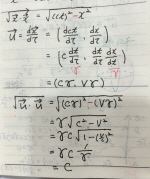 √x⃗·x⃗ = √(ct)² - x²
u⃗ = dx⃗/dτ = (dct/dτ, dx/dτ)
= (c dt/dτ, dx/dt dt/dτ)
γ γ
= (cγ, vγ)
√u⃗·u⃗ = √(cγ)² - (vγ)²
= γ√c² - v²
= γc√1 - (v/c)²
= γc 1/γ
= c